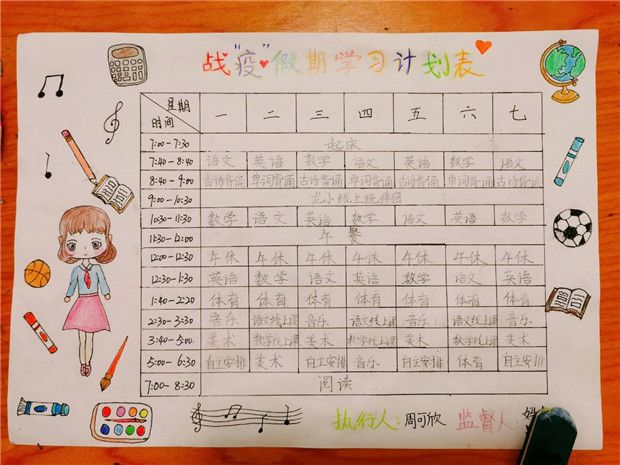 战"疫"假期学习计划表
星期 一 二 三 四 五 六 七
时间
7:00-7:30 起床
7:40-8:40 语文 英语 数学 语文 英语 数学 语文
8:40-9:00 古诗背诵 单词背诵 古诗背诵 单词背诵 古诗背诵 单词背诵 古诗背诵
9:00-10:30 小线上玩
10:30-11:30 数学 语文 英语 数学 语文 英语 数学
11:30-12:00 午餐
12:00-12:30 午休 午休 午休 午休 午休 午休 午休
12:30-1:30 英语 数学 语文 英语 数学 语文 英语
1:40-2:20 体育 体育 体育 体育 体育 体育 体育
2:30-3:30 音乐 语文线上课 音乐 语文线上课 音乐 语文线上课 音乐
3:40-5:00 美术 数学线上课 美术 数学线上课 美术 数学线上课 美术
5:00-6:30 自主安排 美术 自主安排 音乐 自主安排 体育 自主安排
7:00-8:30 阅读
执行人:周可欣 监督人: 妈